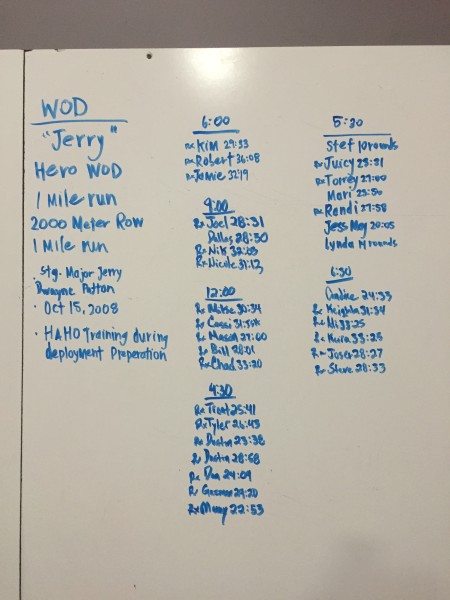 WOD
"Jerry"
Hero WOD
1 Mile run
2000 Meter Row
1 Mile run
. Stg. Major Jerry
Dwayne Patton
. Oct 15, 2008
. HAHO Training during
deployment Preperation
6:00
Rx Kim 29:33
Rx Robert 36:08
Rx Jamie 32:19
9:00
Rx Joel 28:31
Dallas 28:50
Rx Nik 32:03
Rx Nicole 31:13
12:00
Rx 30:34
Rx Cassi
Rx Mason 27:00
Rx Bill 28:01
Rx Chad 33:20
4:30
Rx Trent 25:41
Rx Tyler 26:43
Rx Dustin 23:38
Rx Dustin 28:58
Rx Dan 24:09
Rx 29:20
Rx Manny 22:53
5:30
Stef 10 rounds
Rx Juicy 23:21
Rx Torrey 27:00
Mari 25:50
Rx Randi 27:58
Jess May 28:05
Lynda 14 rounds
6:30
24:33
Rx 31:34
Rx 33:25
Rx Kura 33:25
Rx Jose 28:27
Rx Steve 28:33